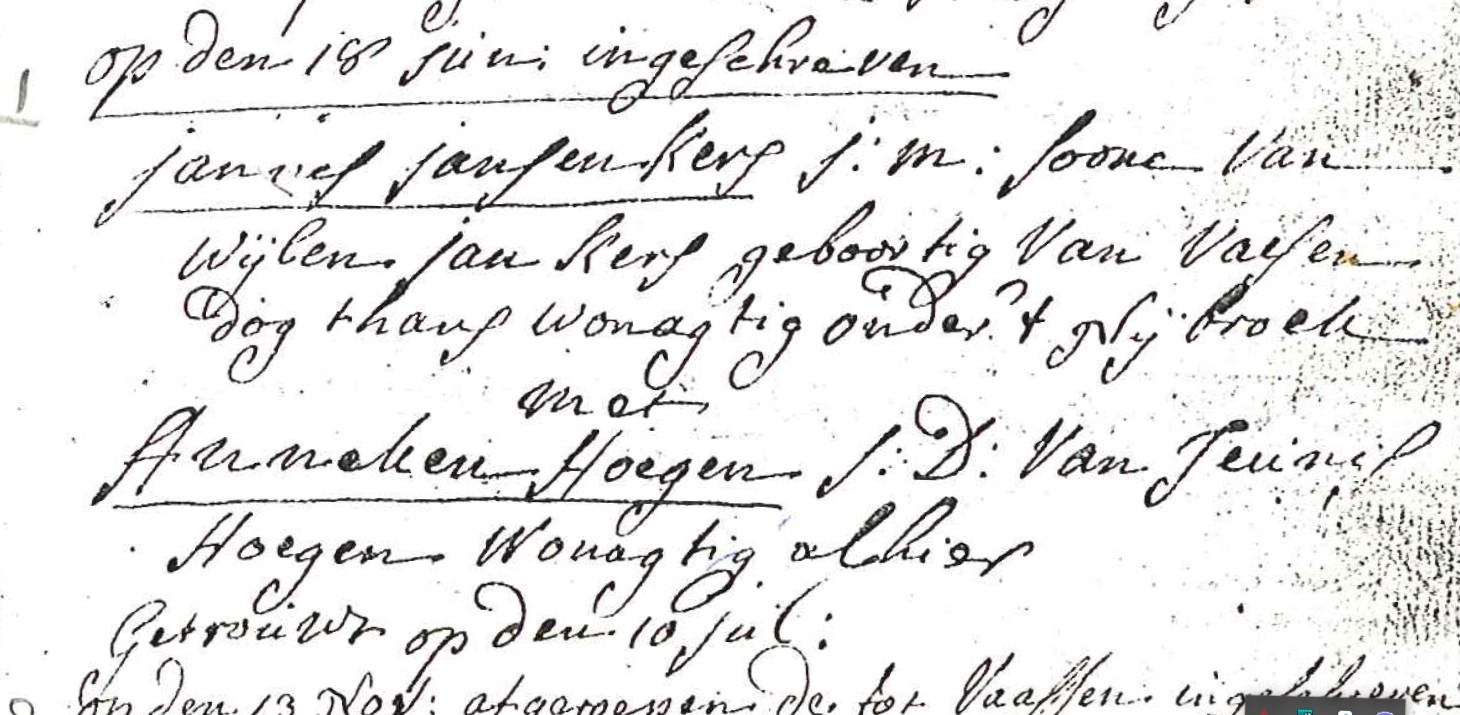 op den 18 Jun: ingeschreven
Jannes Jansen Kers J: m: soone Van
Wijlen Jan Kers geboortig Van Vaesen
Dog thans Wonagtig onder 't Nijbroek
met
Anneken Hoegen J: D: Van Teunis
Hoegen Wonagtig alhier
Getrouwt op den 10 Jul:
op den 13 Nov: afgeroepen de tot Vaassen ingeschreven